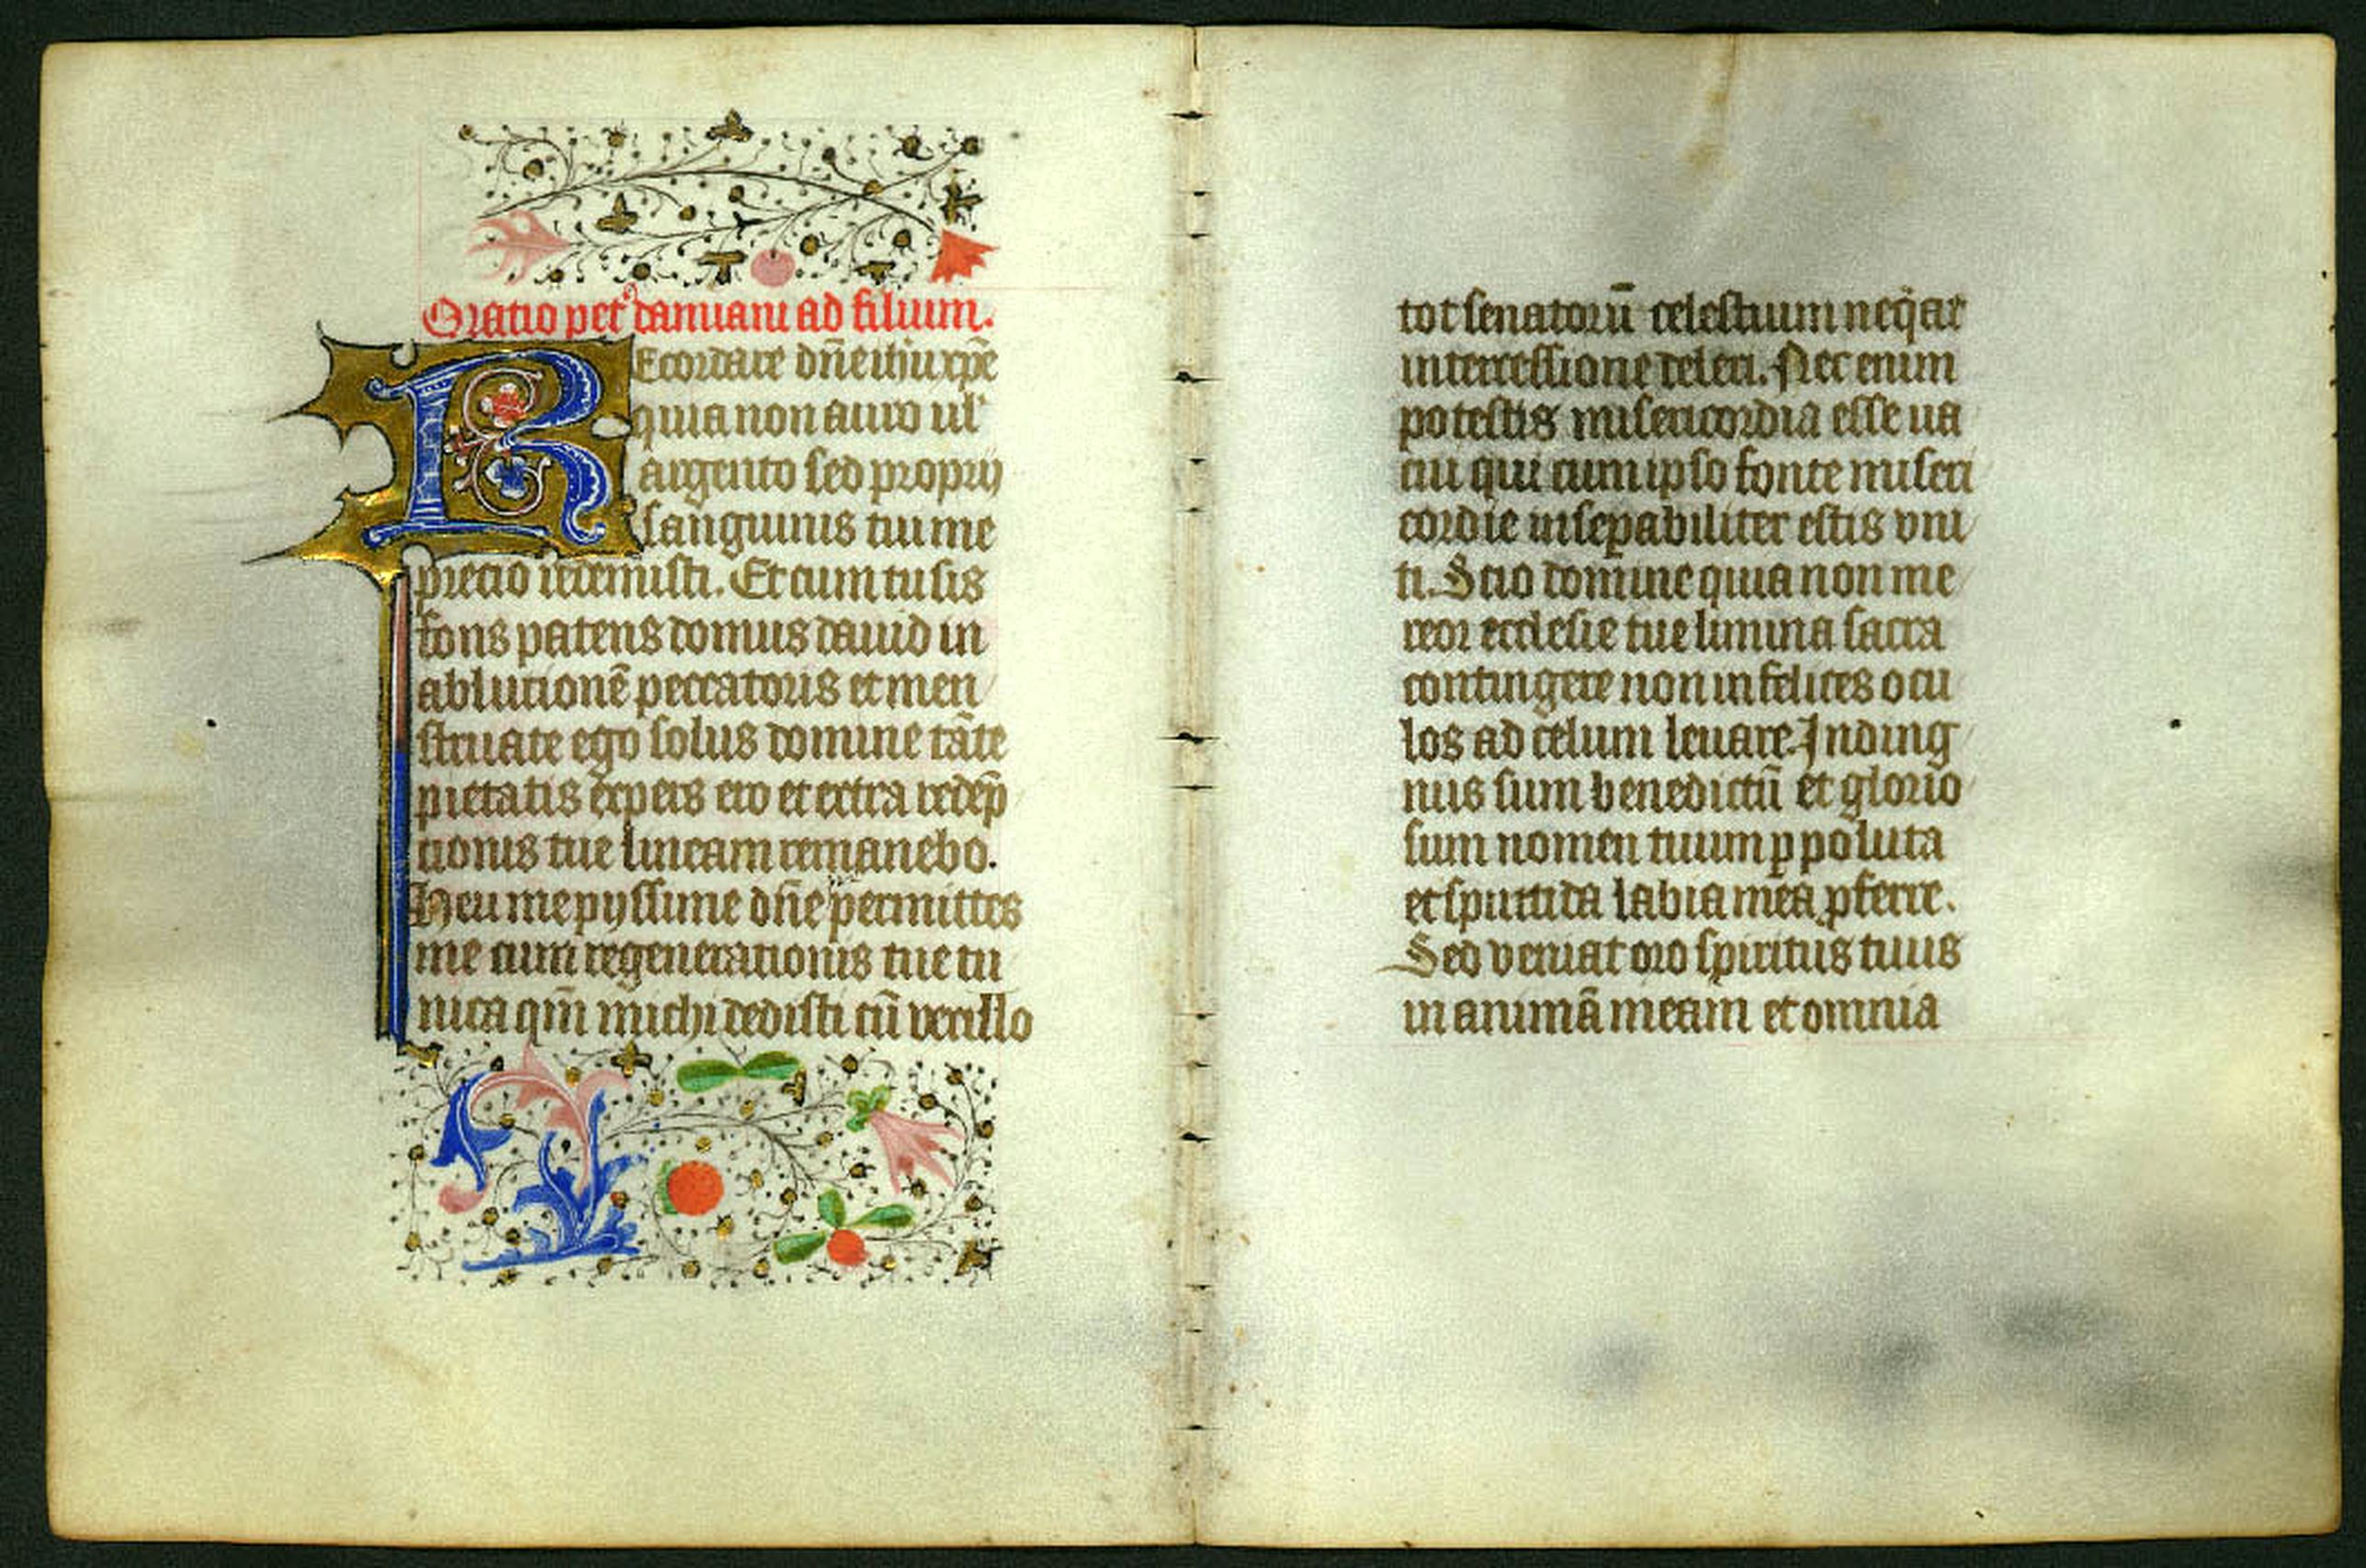 Oratio pet' damiani ad filium.
REcordare dn̄e ihu xp̄e
quia non auro ul'
argento sed proprij
sanguinis tui me
precio redemisti. Et cum tu sis
fons patens domus dauid in
ablutionē peccatoris et men
struate ego solus domine tāte
pietatis expers ero et extra redēp
tionis tue lineam remanebo.
Heu me pijssime dn̄e permittes
me cum regenerationis tue tu
nica qm̄ michi dedisti cū vexillo
tot senatorū celestium neq̇at
intercessione deleri. Nec enim
potestis misericordia esse ua
cui qui cum ipso fonte miseri
cordie insep̱abiliter estis vni
ti. Scio domine quia non me
reor ecclesie tue limina sacra
contingere non infelices ocu
los ad celum leuare. Inding
nus sum benedictū et glorio
sum nomen tuum ꝑ poluta
et sputtida labia mea ꝓferre.
Sed veniat oro spiritus tuus
in animā meam et omnia